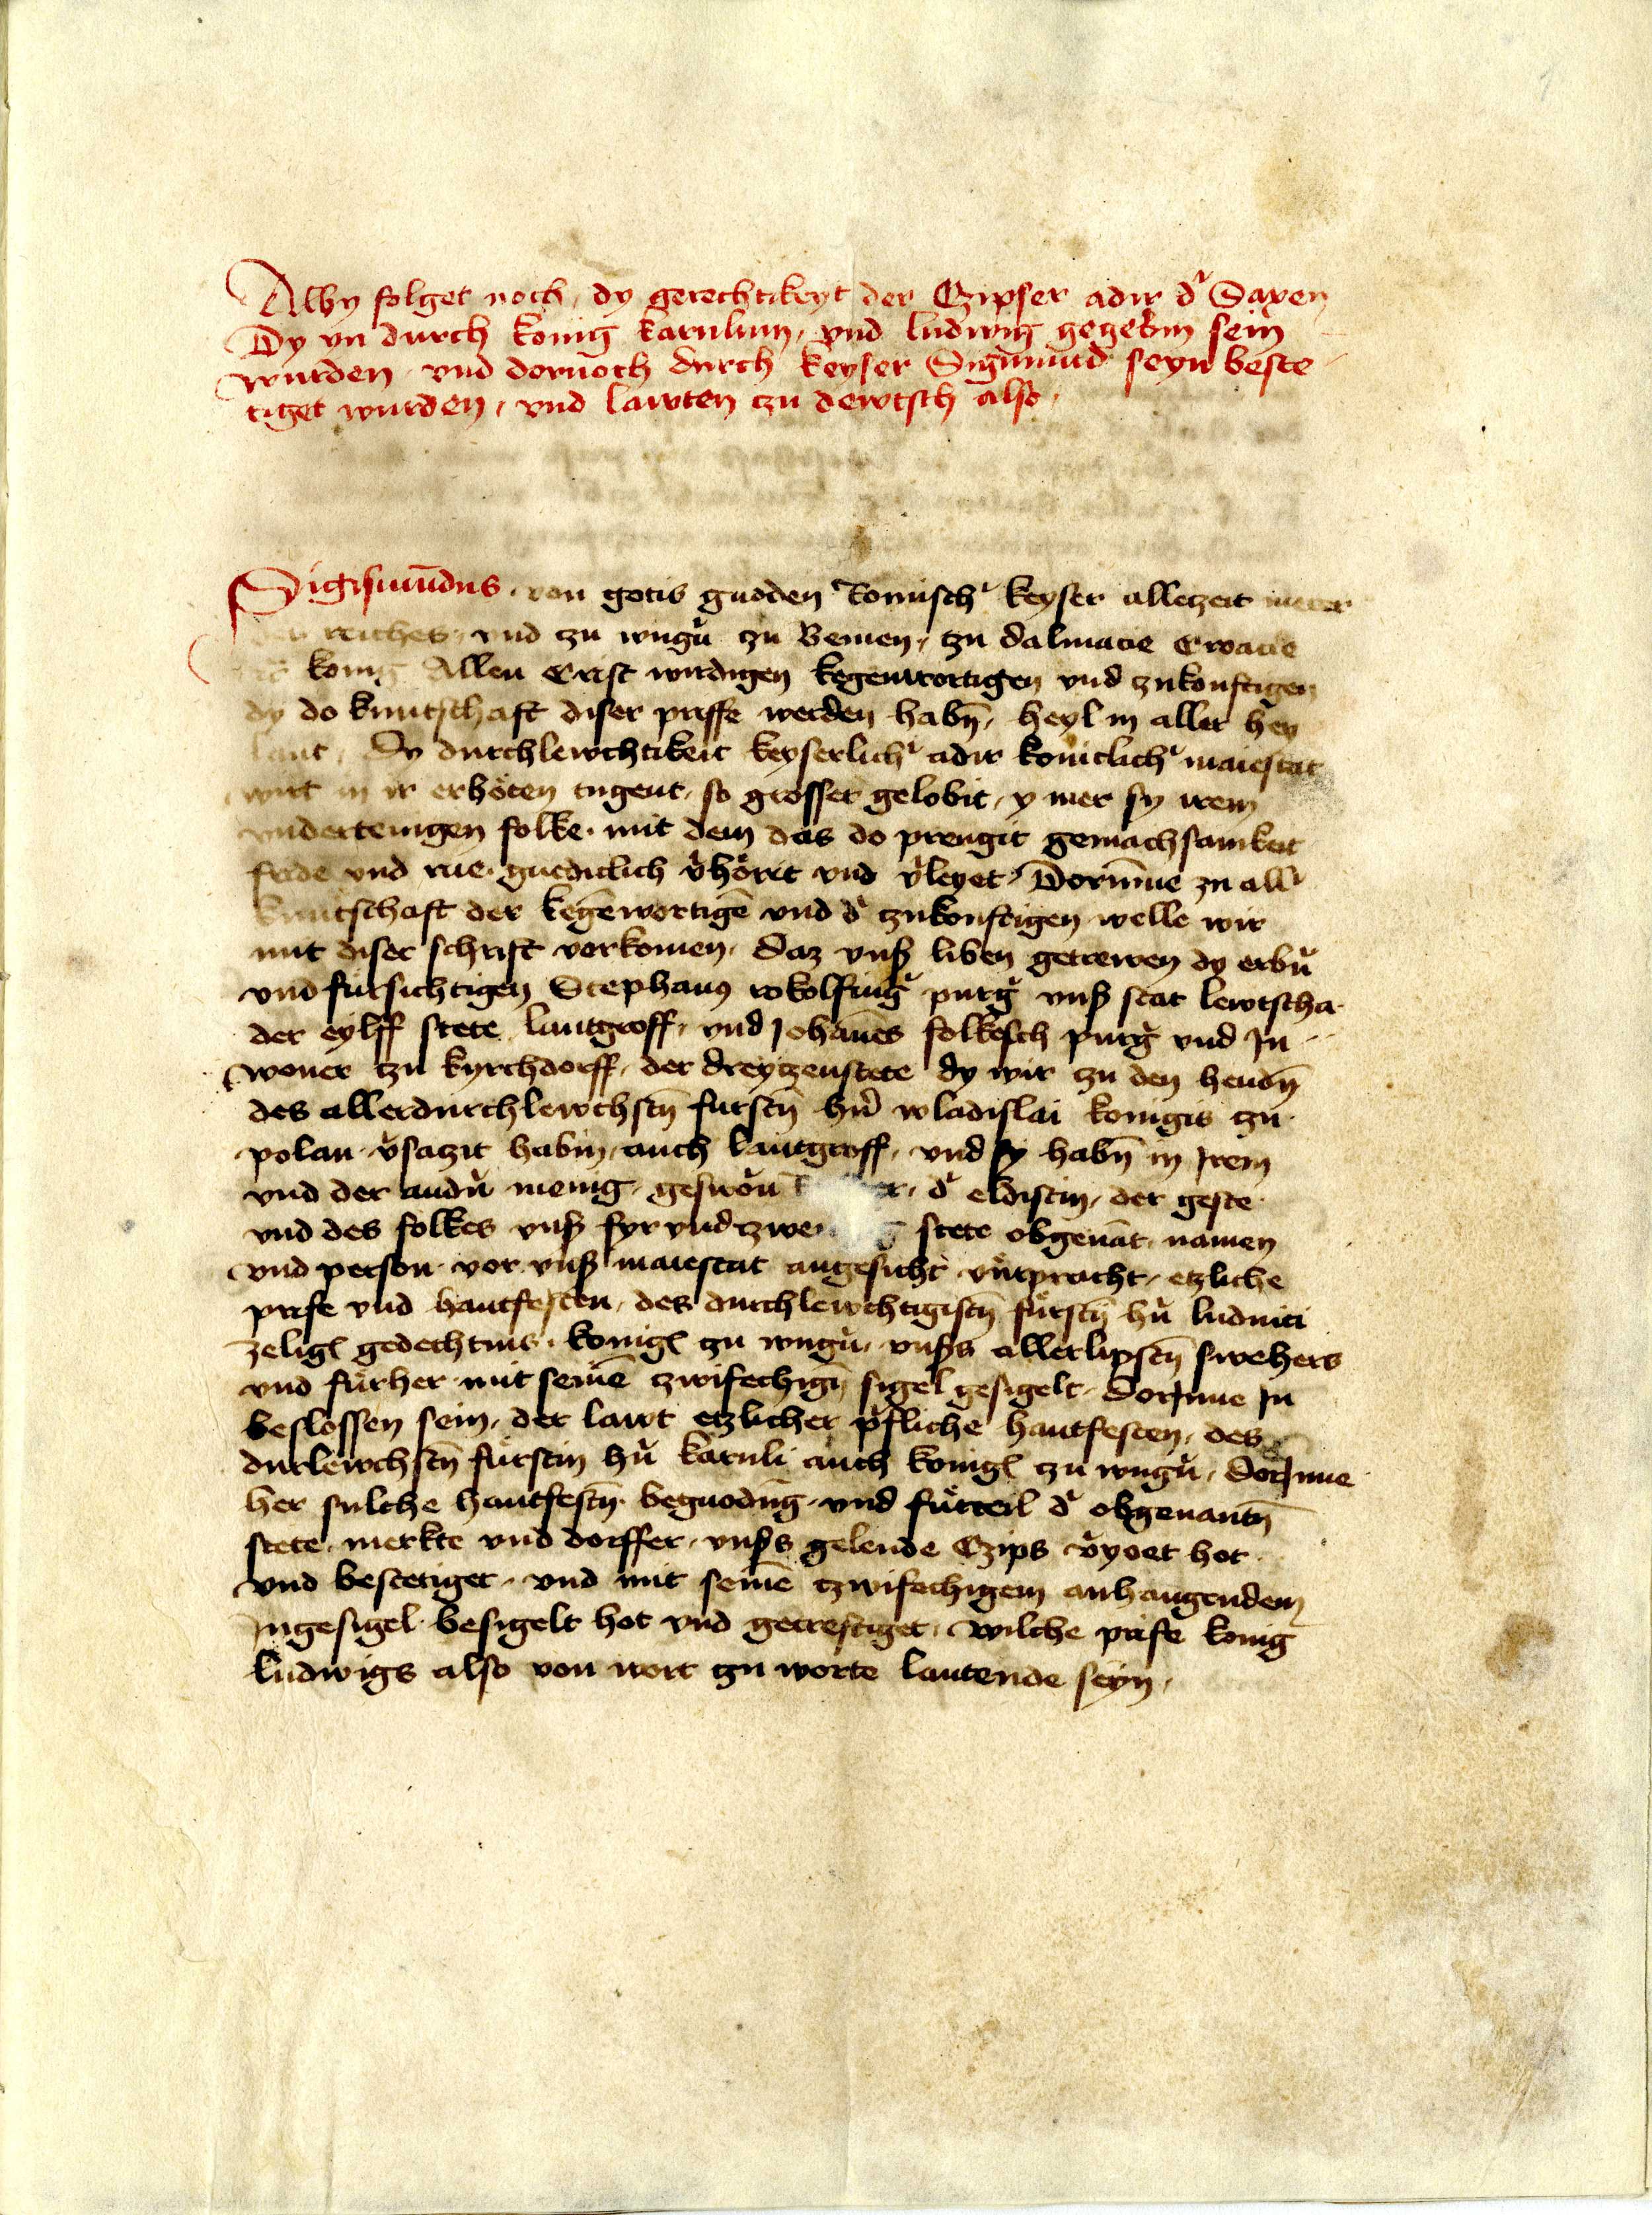 Alhy folget noch, dy gerechtikeyt der Czipser adir d' Saxen
Dy yn durch konig karulum, vnd ludwig gegebin sein
wurden vnd dornoch durch keyser Sigimūd seyn beste
tiget wurden, vnd lawten czu dewtsch also,
Sigismūdus, von gotis gnoden Romisch' keyser alletzeit merer
reiches, vnd zu vngū zu Bemen, tzu dalmacie Croacie
konig Allen Crist wirdigen kegenwortigen vnd zukonftigen
dy do kuntschaft diser priffe werden habn̄, heyl in aller hey
lant, Dy durchlewchtikeit keyserlich' adir koniclich' maiestat
wirt in ir erhöten tugent, so grosser gelobit, y mer sy irem
vndertenigen folke, mit dem das do prengit gemachsamkeit
frede vnd rue, gnediclich v'hörit vnd v'leyet, Dorūme zu all'
kuntschaft der kegēwortigē vnd d' zukonftigen welle wir
mit diser schrift vorkomen, daz vnß liben getrewen dy erbū
vnd fürsichtigen Stephanus wolfring' purg' vnß stat lewtscha
der eylff stete lantgroff, vnd Johānes folkesch purg' vnd In
woner tzu kyrchdorff, der dreytzenstete dy wir tzu den hendn̄
des allerdurchlewchstn̄ furstn̄ hn̄ wladislai konigis tzu
polan v'satzit habin, auch lantgroff, vnd sy habn̄ in Irem
vnd der andn̄ menig, geswōn er, d' eldistin, der geste
vnd des folkes vnß fyr vnd zwen stete obgenāt, namen
vnd person vor vnß maiestat angesicht v'ntpracht, etzliche
prife vnd hantfesten, des durchlewchtigistn̄ fürstn̄ hn̄ ludwici
zelig' gedechtnis, konig' zu vngn̄, vnßs allerlipstn̄ swehers
vnd fürher mit seinē zwifechign̄ sigel gesigelt, dorJnne In
beslossen sein, der lawt etzlicher p'fliche hantfesten, des
durlewchstn̄ fürstin hn̄ karuli auch konig' zu vngn̄, dorJnne
her sulche hantfestn̄ begnodūg vnd fürteil d' obgenantn̄
stete, merkte vnd dorffer, vnßs gelende Czips v'yoet hot
vnd bestetiget, vnd mit seinē tzwifechigem anhangendem
Ingesigel besigelt hot vnd getrestiget, wilche prife konig
ludwigs also von wort tzu worte lautende seyn,